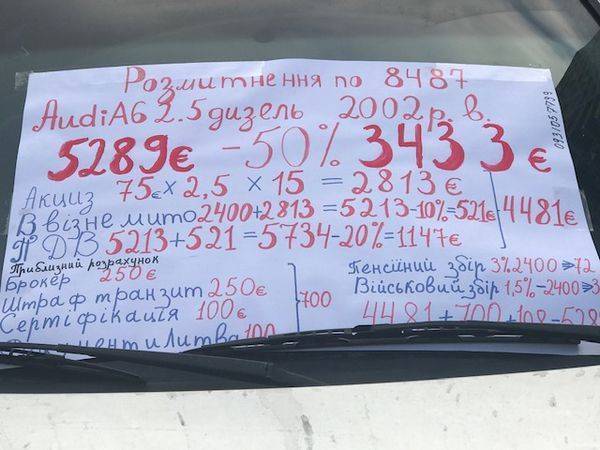 Розмитнення по 8487
AudiA6 2.5 дизель 2002 р. в.
5289€ -50% 3433€
Акциз 75€ x 2,5 x 15 = 2813€
Ввізне мито 2400+2813=5213-10%=521€
4481€
ПДВ 5213+521=5734-20%=1147€
Приблизний розрахунок
Брокер 250€
Штраф транзит 250€
Сертіфікація 100€
Литва 100
700
Пенсійний збір 3% 2400 => 72
Військовий збір 1,5%-2400=>3
4481+700+108=528
0931057739